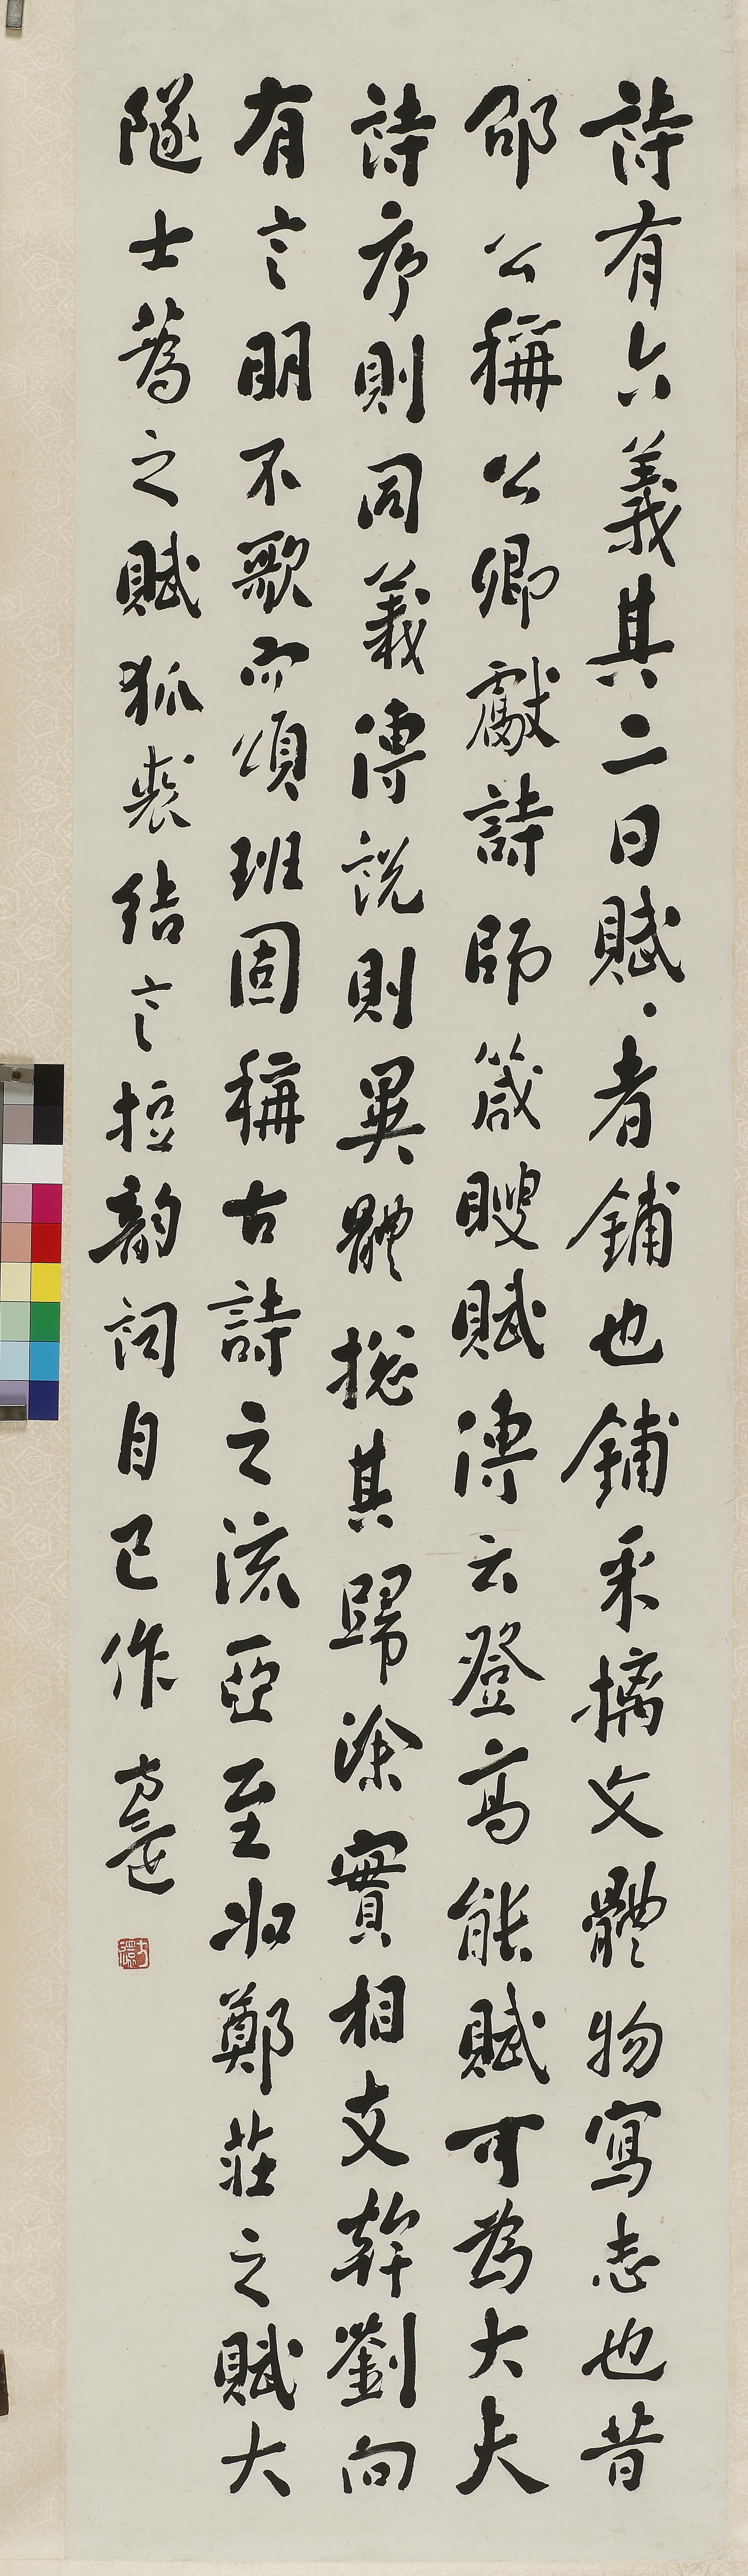 詩有六義其二曰賦·者鋪也鋪采摛文體物寫志也昔
邵公稱公卿獻詩師箴瞍賦傳云登高能賦可為大夫
詩序則同義傳說則異體摠其歸涂實相支幹劉向
有言明不歌而頌班固稱古詩之流亞至如鄭莊之賦大
隧士蒍之賦狐裘結言𢭃韻詞自己作
方還
方還